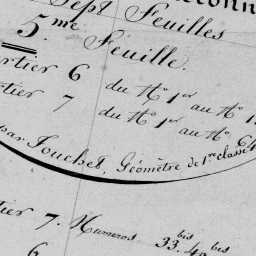 Sept Feuilles
5.me Feuille.
rtier 6 du No 1er au No 1
tier 7 du No 1er au No 64
par Touchet, Géomètre de 1re classe
tier 7. Numeros 33.bis 40bis
6